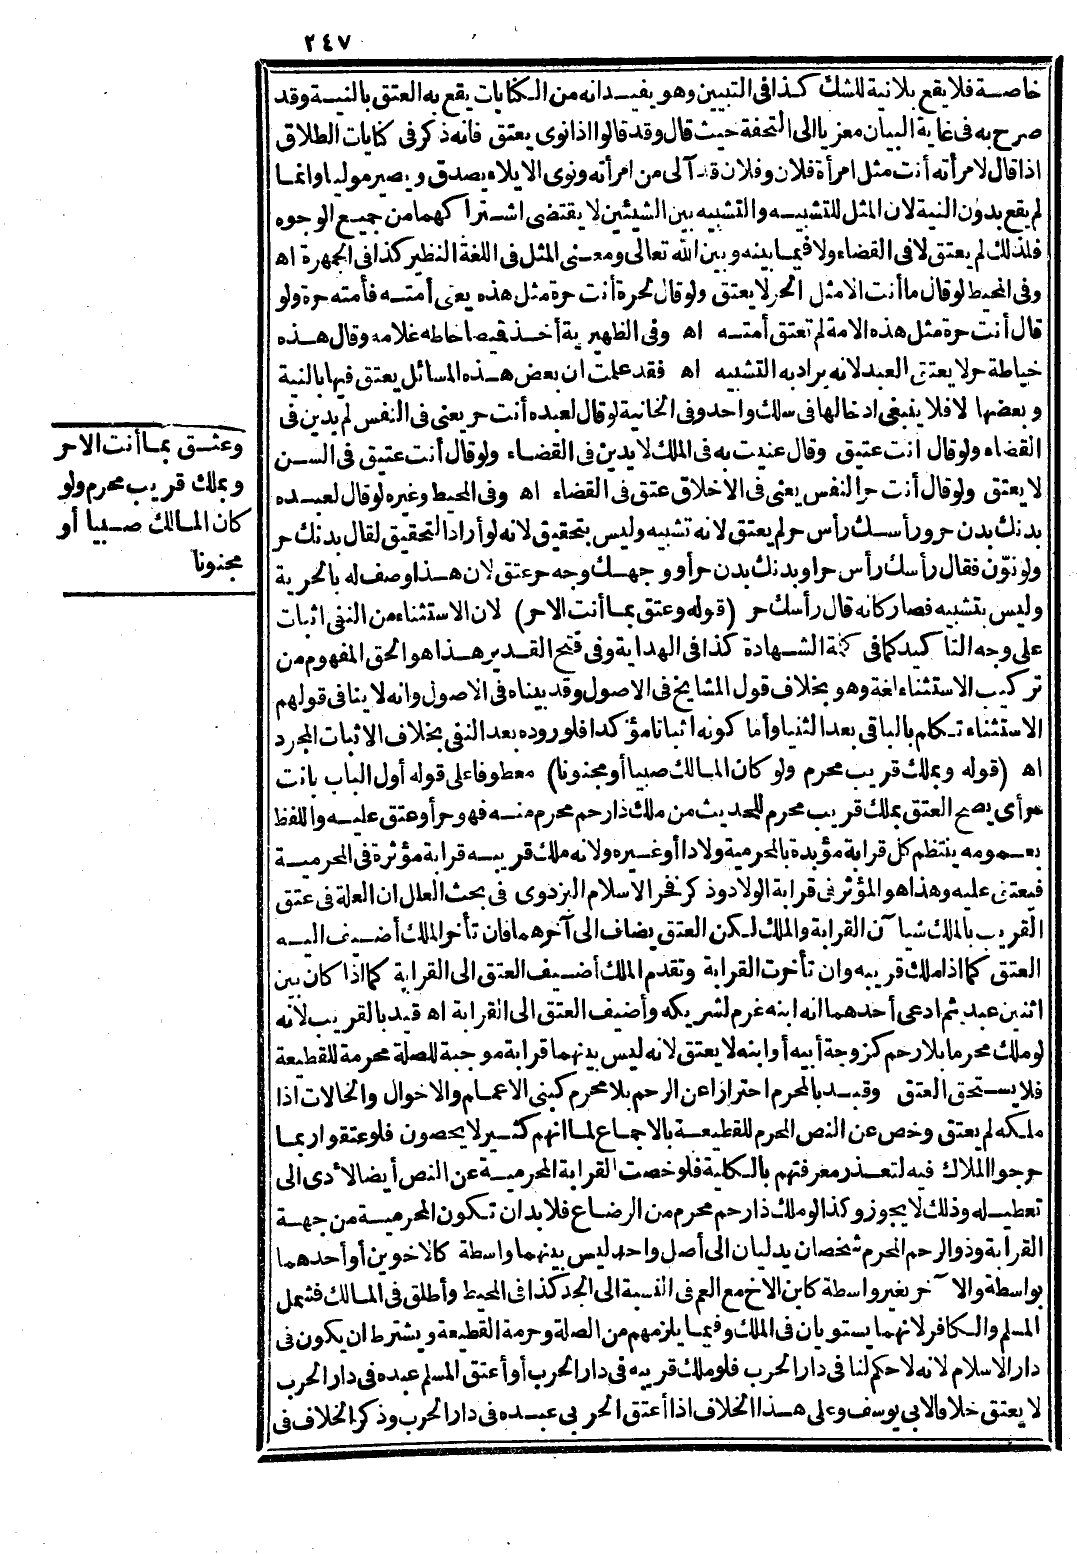 ٢٤٧
خاصة فلا يقع بلانية للشك كذا فى التبيين وهو يفيد انه من الكنايات يقع به العتق بالنية وقد
صرح به فى غاية البيان معزيا الى التحفة حيث قال وقد قالوا اذا نوى يعتق فانه ذكر فى كنايات الطلاق
اذا قال لامرأته أنت مثل امرأة فلان وفلان قد آلى من امرأته ونوى الايلاء يصدق ويصير موليا وانما
لم يقع بدون النية لان المثل للتشبيه والتشبيه بين الشيئين لا يقتضى اشتراكهما من جميع الوجوه
فلذلك لم يعتق لا فى القضاء ولا فيما بينه وبين الله تعالى ومعنى المثل فى اللغة النظير كذا فى الجهرة اه
وفى المحيط لو قال ما أنت الا مثل الحر لا يعتق ولو قال لحرة أنت حرة مثل هذه يعنى أمته فأمته حرة ولو
قال أنت حرة مثل هذه الامة لم تعتق أمته اه وفى الظهيرية أخذ قيصا خاطه غلامه وقال هذه
خياطة حر لا يعتق العبد لانه يراد به التشبيه اه فقد علمت ان بعض هذه المسائل يعتق فيها بالنية
وبعضها لا فلا ينبغى ادخالها فى سلك واحد وفى الخانية لو قال لعبده أنت حر يعنى فى النفس لم يدين فى
القضاء ولو قال أنت عتيق وقال عنيت به فى الملك لا يدين فى القضاء ولو قال أنت عتيق فى السن
لا يعتق ولو قال أنت حر النفس يعنى فى الاخلاق عتق فى القضاء اه وفى المحيط وغيره لو قال لعبده
بدنك بدن حر ورأسك رأس حر لم يعتق لانه تشبيه وليس بتحقيق لانه لو أراد التحقيق لقال بدنك حر
ولو نوّن فقال رأسك رأس حر أو بدنك بدن حر أو وجهك وجه حر عتق لان هذا وصف له بالحرية
وليس بتشبيه فصار كانه قال رأسك حر (قوله وعتق بما أنت الاحر) لان الاستثناء من النفى اثبات
على وجه التأكيد كما فى كلمة الشهادة كذا فى الهداية وفى فتح القدير هذا هو الحق المفهوم من
تركيب الاستثناء لغة وهو بخلاف قول المشايخ فى الاصول وقد بيناه فى الاصول وانه لا ينافى قولهم
الاستثناء تكلم بالباقى بعد الثنيا وأما كونه اثباتا مؤكدا فلوروده بعد النفى بخلاف الاثبات المجرد
اه (قوله وبملك قريب محرم ولو كان المالك صبيا أو مجنونا) معطوفا على قوله أول الباب بانت
حر أى يصح العتق بملك قريب محرم للحديث من ملك ذا رحم محرم منه فهو حر أو عتق عليه واللفظ
بعمومه ينتظم كل قرابة مؤيدة بالمحرمية ولادا أو غيره ولانه ملك قريبه قرابة مؤثرة فى المحرمية
فيعتق عليه وهذا هو المؤثر فى قرابة الولاد وذكر فخر الاسلام البزدوى فى بحث العلل ان العلة فى عتق
القريب بالملك شيآن القرابة والملك لكن العتق يضاف الى آخرهما فان تأخر الملك أضيف اليه
العتق كما اذا ملك قريبه وان تأخرت القرابة وتقدم الملك أضيف العتق الى القرابة كما اذا كان بين
اثنين عبد ثم ادعى أحدهما انه ابنه غرم لشريكه وأضيف العتق الى القرابة اه قيد بالقريب لانه
لو ملك محرما بلا رحم كزوجة أبيه أو ابنه لا يعتق لانه ليس بينهما قرابة موجبة للصلة محرمة للقطيعة
فلا يستحق العتق وقيد بالمحرم احترازا عن الرحم بلا محرم كبنى الاعمام والاخوال والخالات اذا
ملكه لم يعتق وخص عن النص المحرم للقطيعة بالاجماع لما انهم كثير لا يحصون فلو عتقوا ربما
حرجوا الملاك فيه لتعذر معرفتهم بالكلية فلو خصت القرابة المحرمية عن النص أيضا لادى الى
تعطيله وذلك لا يجوز وكذا لو ملك ذا رحم محرم من الرضاع فلا بد ان تكون المحرمية من جهة
القرابة وذو الرحم المحرم شخصان يدليان الى أصل واحد ليس بينهما واسطة كالاخوين أو أحدهما
بواسطة والآخر بغير واسطة كابن الاخ مع العم فى النسبة الى الجد كذا فى المحيط وأطلق فى المالك فشمل
المسلم والكافر لانهما يستويان فى الملك وفيما يلزمهم من الصلة وحرمة القطيعة ويشترط ان يكون فى
دار الاسلام لانه لا حكم لنا فى دار الحرب فلو ملك قريبه فى دار الحرب أو أعتق المسلم عبده فى دار الحرب
لا يعتق خلافا لابى يوسف وعلى هذا الخلاف اذا أعتق الحربى عبده فى دار الحرب وذكر الخلاف فى
وعتق بما أنت الاحر
وبملك قريب محرم ولو
كان المالك صبيا أو
مجنونا